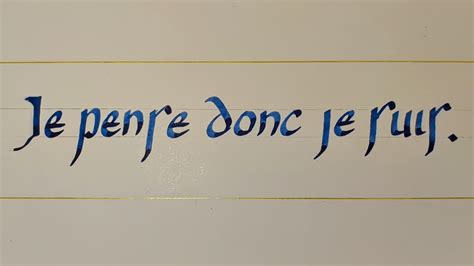 Je pense donc je suis.